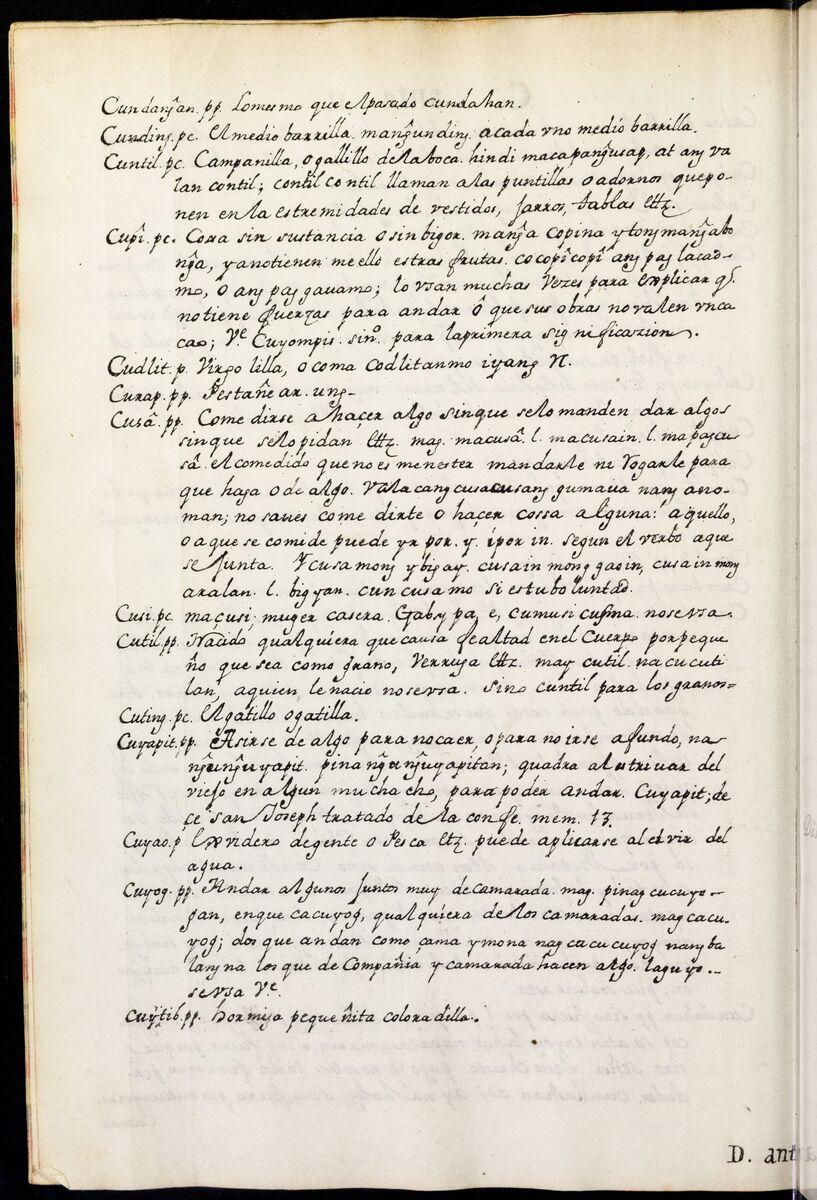 Cundangan. pp. Lomesmo que elpasado cundahan.
Cunding. pc. El medio barrilla. mangunding. acada vno medio barrilla.
Cuntil. pc. Campanilla, o gallillo dela boca. hindi macapangusap, at ang va
lan contil; contil contil llaman alas puntillas o adornos quepo-
nen en la estremidades de vestidos, jarros, tablas &tz.
Cupî. pc. Cossa sin sustancia o sin bigor. manga copina ytong mangabo
nga, yanotienen meello estras frutas. cocopîcopî ang pag lacad-
mo, o ang pag gauamo; lo vsan muchas vezes para explicar q̃.
notiene fuerzas para andar ô que sus obras no valen vnca
cao; Ve. Cuyompis. sino. para laprimera significazion.
Cudlit. p. Virgo lilla, o coma codlitanmo iyang N.
Curap. pp. Pestañear. ung-
Cusâ. pp. Comedirse ahaçer algo sinque selo manden dar algos
sinque selo pidan &tz. mag. macusâ. l. macusain. l. mapagcu
sâ. el comedido que no es menester mandarle ni Rogarle para
que haga o de algo. Vala cang cusacusang gumaua nang ano-
man; no saues comedirte o haçer cossa alguna: aquello,
o aque se comide puede yr por. y. ipor in. segun el verbo aque
se junta. Ycusa mong ybigay. cusain mong gaoin, cusain mong
aralan. l. bigyan. cun cusa mo si estuboluntad.
Cusi. pc. maçusi; muger casera. Gaby pa, e, cumusi cusina. nosevsa.
Cutil. pp. Naçido qualquiera que causa fealtad enel Cuerpo porpeque
ño que sea como grano, Verruga &tz. may cutil. nacucuti
lan, aquien le nacio nosevsa. sino cuntil para los granos=
Cuting. pc. El gatillo ogatilla.
Cuyapit. pp. Asirse de algo para nocaer, opara no irse afundo, na-
ngunguyapit. pinangungunguyapitan; quadra al estriuar del
viejo en algun muchacho, para poder andar. Cuyapit; de
çe san Joseph tratado de la confe. mem. 13.
Cuyao. p. Ervidero degente o Pesca &tz. puede aplicarse al ervir del
agua.
Cuyog. pp. Andar algunos juntos muy decamarada. mag. pinagcucuyo-
gan, enque cacuyog, qualquiera delos camaradas. magcacu-
yog; dos que andan como çama ymona nagcucucuyog nangba
langna los que de Compañia y camarada hacen algo. laguyo.-
sevsa Ve.
Cuyitib. pp. hormiga pequeñita coloradilla.